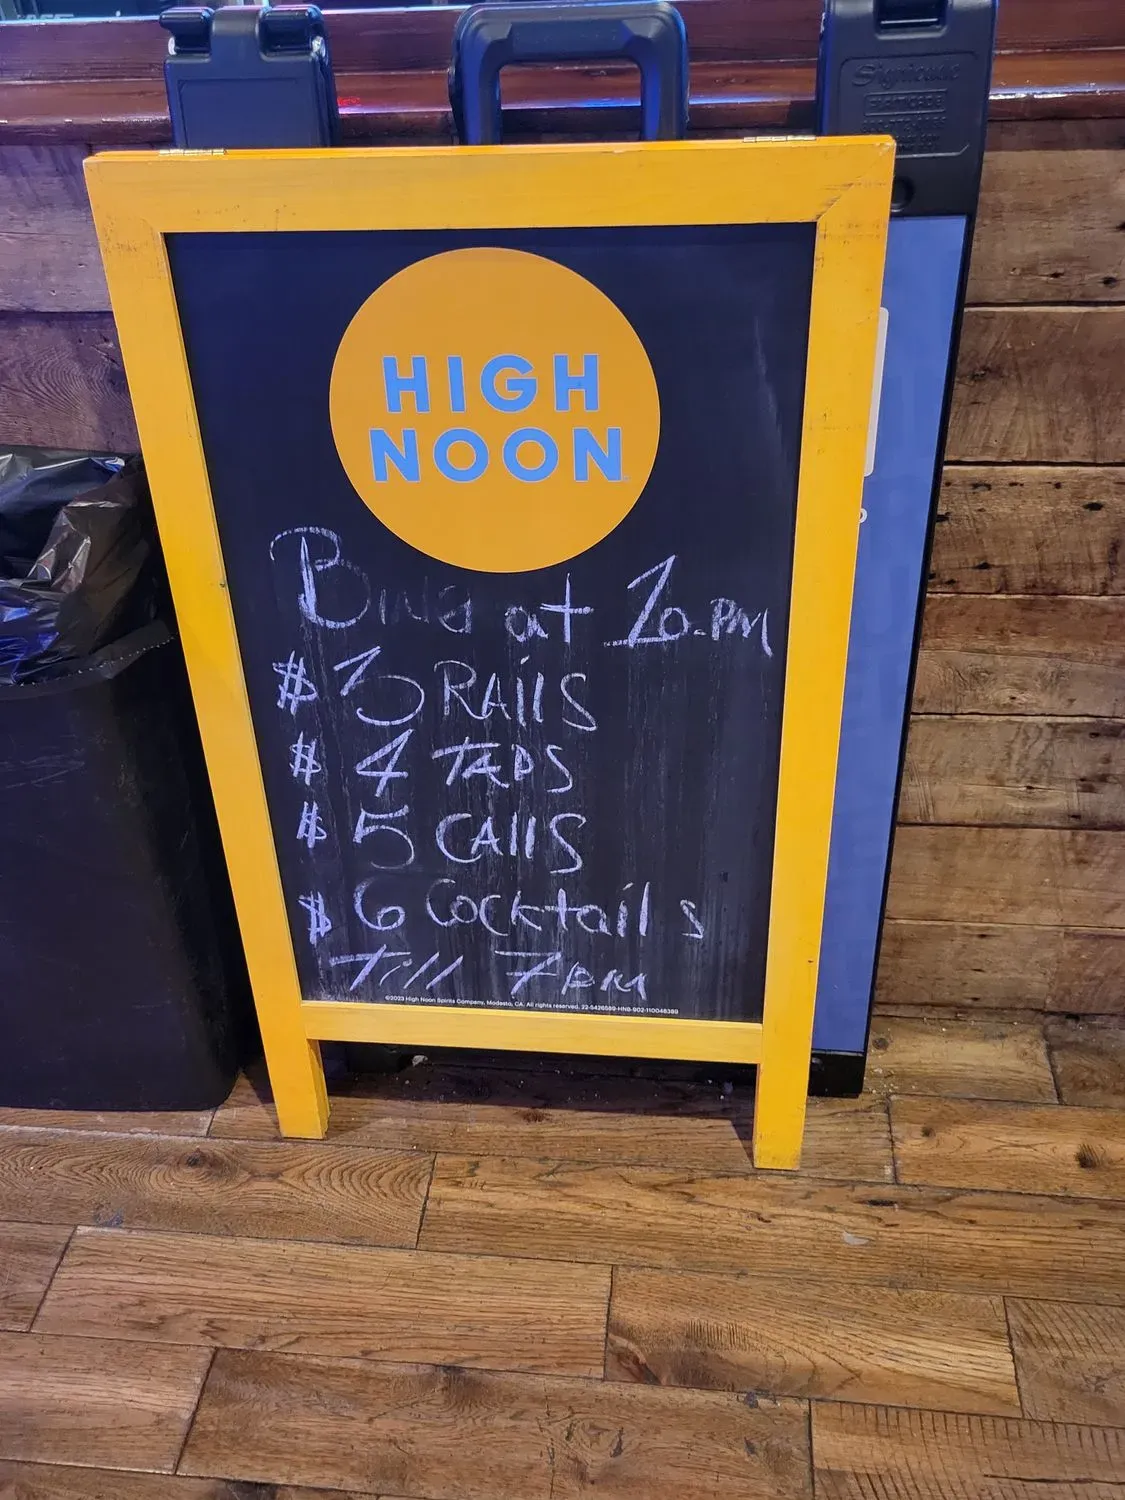 HIGH
NOON
at 10.PM
$3 RAils
$4 TAPS
$5 CAllS
$6 Cocktails
Till 7pm
©2023 High Noon Spirits Company, Modesto, CA. All rights reserved. 22-5426589-HNB-902-110048389